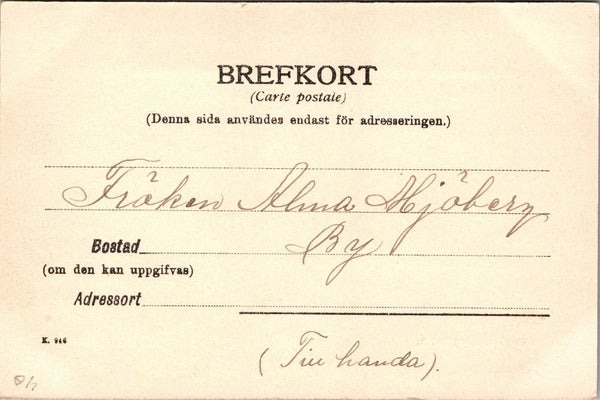 BREFKORT
(Carte postale)
(Denna sida användes endast för adresseringen.)
Fröken Alma Mjöberg
Bostad By
(om den kan uppgifvas)
Adressort
K. 946
(Till handa).